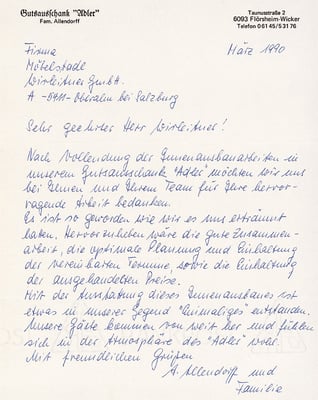 Gutsausschank "Adler"
Fam. Allendorff
Taunusstraße 2
6093 Flörsheim-Wicker
Telefon 0 61 45/5 31 76
Firma
März 1990
Möbelstadl
Wirleitner GmbH.
A - 5411 - Oberalm bei Salzburg
Sehr geehrter Herr Wirleitner!
Nach Vollendung der Innenausbauarbeiten in
unserem Gutsausschank "Adler" möchten wir uns
bei Ihnen und Ihrem Team für Ihre hervor-
ragende Arbeit bedanken.
Es ist so geworden wie wir es uns erträumt
haben. Hervorzuheben wäre die gute Zusammen-
arbeit, die optimale Planung und Einhaltung
der vereinbarten Termine, sowie die Einhaltung
der ausgehandelten Preise.
Mit der Ausstattung dieses Innenausbaues ist
etwas in unserer Gegend "Einmaliges" entstanden.
Unsere Gäste kommen von weit her und fühlen
sich in der Atmosphäre des "Adler" wohl.
Mit freundlichen Grüßen
A. Allendorff und
Familie